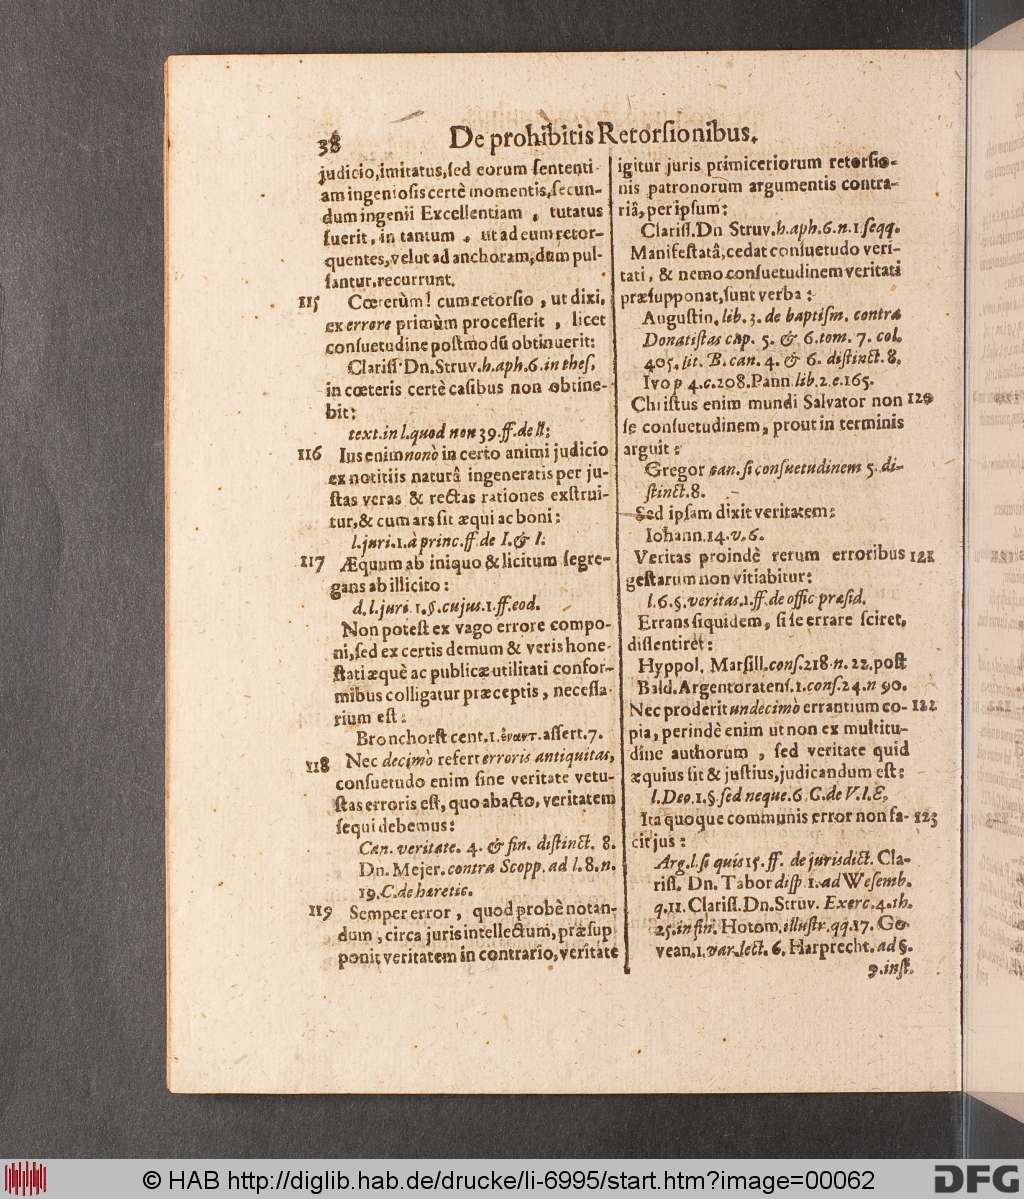 38 De prohibitis Retorsionibus.
judicio, imitatus, sed eorum sententi-
am ingeniosis certè momentis, secun-
dum ingenii Excellentiam, tutatus
fuerit, in tantum, ut ad eum retor-
quentes, velut ad anchoram, dum pul-
santur, recurrunt.
115 Cœterùm! cum retorsio, ut dixi,
ex errore primùm processerit, licet
consuetudine postmodū obtinuerit:
Clariss. Dn. Struv. h. aph. 6. in thes.
in cœteris certè casibus non obtine-
bit:
text. in l. quod non 39. ff. de ll:
116 Ius enim nonò in certo animi judicio
ex notitiis naturâ ingeneratis per ju-
stas veras & rectas rationes exstrui-
tur, & cum ars sit æqui ac boni:
l. juri. 1. à princ. ff. de I. & I:
117 Æquum ab iniquo & licitum segre-
gans ab illicito:
d. l. juri. 1. §. cujus. 1. ff. eod.
Non potest ex vago errore compo-
ni, sed ex certis demum & veris hone-
stati æquè ac publicæ utilitati confor-
mibus colligatur præceptis, necessa-
rium est:
Bronchorst cent. 1. ἐναντ. assert. 7.
118 Nec decimò refert erroris antiquitas,
consuetudo enim sine veritate vetu-
stas erroris est, quo abacto, veritatem
sequi debemus:
Can. veritate. 4. & fin. distinct. 8.
Dn. Mejer. contra Scopp. ad l. 8. n.
19. C. de hæretic.
119 Semper error, quod probè notan-
dum, circa juris intellectum, præsup
ponit veritatem in contrario, veritate
igitur juris primiceriorum retorsio-
nis patronorum argumentis contra-
riâ, per ipsum:
Clariss. Dn Struv. h. aph. 6. n. 1. seqq.
Manifestatâ, cedat consuetudo veri-
tati, & nemo consuetudinem veritati
præsupponat, sunt verba:
Augustin. lib. 3. de baptism. contra
Donatistas cap. 5. & 6. tom. 7. col.
405. lit. B. can. 4. & 6. distinct. 8.
Ivo p 4. c. 208. Pann. lib. 2. c. 165.
Christus enim mundi Salvator non 120
se consuetudinem, prout in terminis
arguit:
Gregor can. si consuetudinem 5. di-
stinct. 8.
Sed ipsam dixit veritatem:
Iohann. 14. v. 6.
Veritas proindè rerum erroribus 121
gestarum non vitiabitur:
l. 6. §. veritas. 1. ff. de offic præsid.
Errans siquidem, si se errare sciret,
dissentiret:
Hyppol. Marsill. cons. 218. n. 22. post
Bald. Argentoratens. 1. cons. 24. n 90.
Nec proderit undecimò errantium co- 122
pia, perindè enim ut non ex multitu-
dine authorum, sed veritate quid
æquius sit & justius, judicandum est:
l. Deo. 1. §. sed neque. 6. C. de V. I. E.
Ita quoque communis error non fa- 123
cit jus:
Arg. l. si quis 15. ff. de jurisdict. Cla-
riss. Dn. Tabor disp. 1. ad Wesemb.
q. 11. Clariss. Dn. Struv. Exerc. 4. th.
25. in fin. Hotom. illustr. qq. 17. Go-
vean. 1. var. lect. 6. Harprecht. ad §.
9. inst.
© HAB http://diglib.hab.de/drucke/li-6995/start.htm?image=00062
DFG